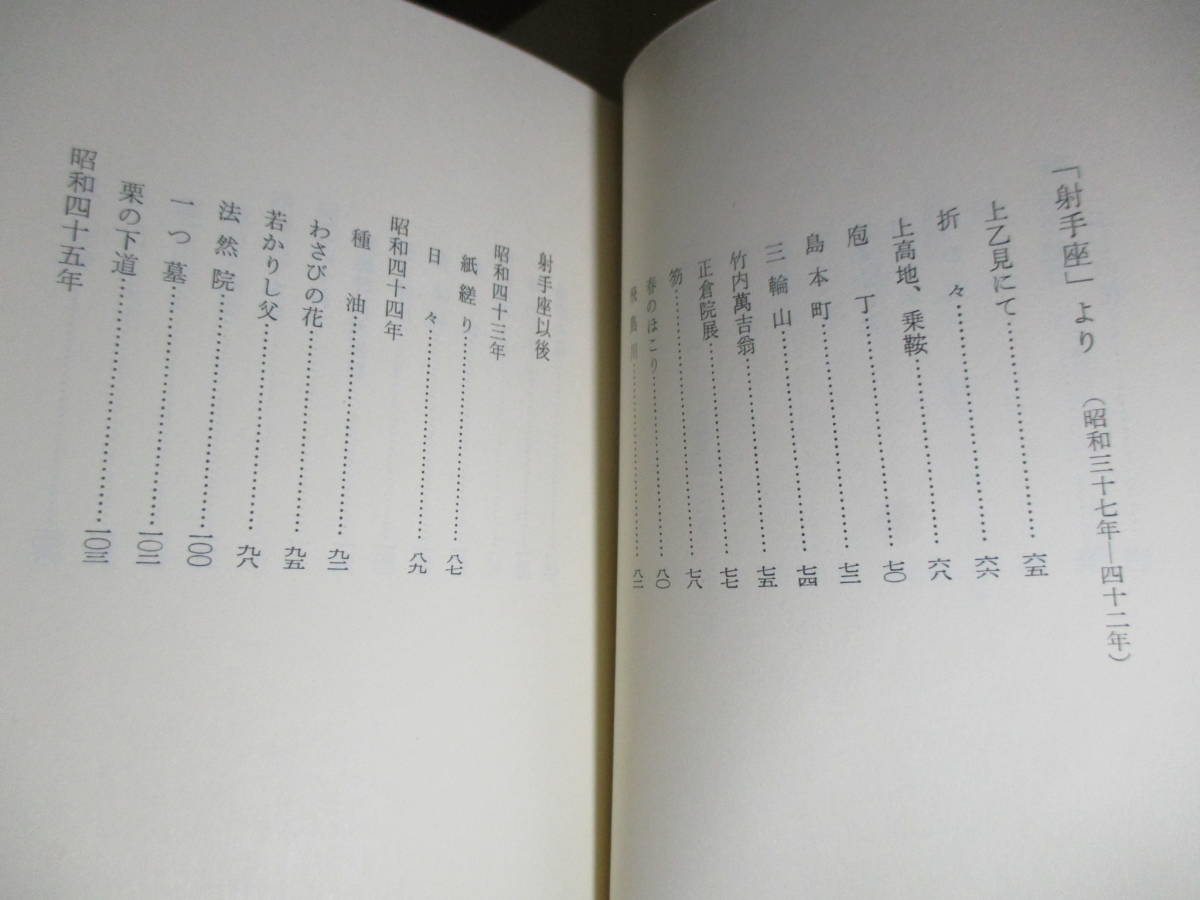 「射手座」より（昭和三十七年―四十二年）
上乙見にて……………………六五
折々……………………六六
上高地、乗鞍……………………六八
庖丁……………………七〇
島本町……………………七二
三輪山……………………七四
竹内萬吉翁……………………七五
正倉院展……………………七七
笏……………………七八
春のほこり……………………八〇
飛鳥川……………………八二
射手座以後
昭和四十三年
紙縒り……………………八七
日々……………………八九
昭和四十四年
種油……………………九二
わさびの花……………………九五
若かりし父……………………九八
法然院……………………一〇〇
一つ墓……………………一〇二
栗の下道……………………一〇三
昭和四十五年